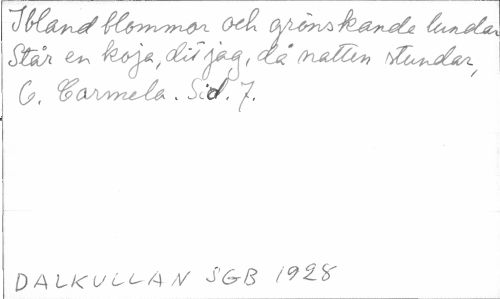 Ibland blommor och grönskande lundar
Står en koja, dit jag, då natten stundar,
C. Carmela. Sid. 7.
DALKULLAN SGB 1928